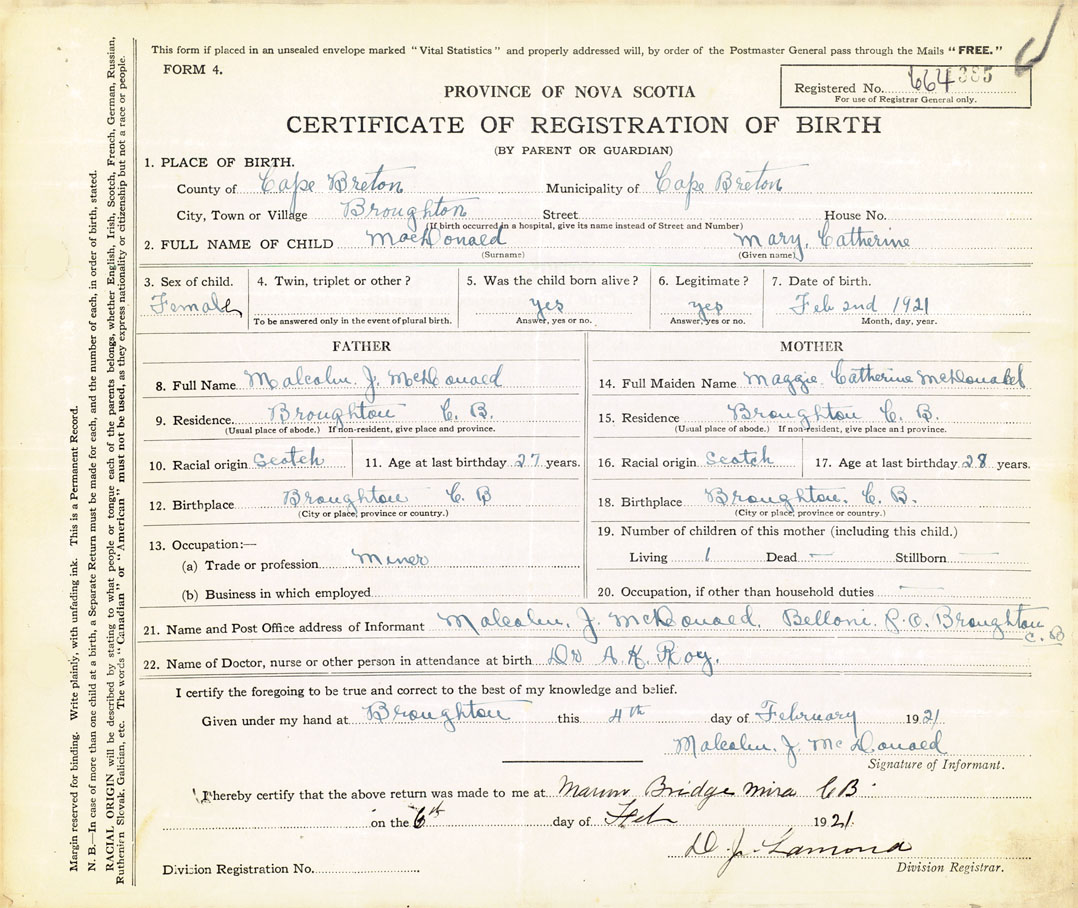 This form if placed in an unsealed envelope marked "Vital Statistics" and properly addressed will, by order of the Postmaster General pass through the Mails "FREE."
FORM 4.
Registered No. 664385
For use of Registrar General only.
PROVINCE OF NOVA SCOTIA
CERTIFICATE OF REGISTRATION OF BIRTH
(BY PARENT OR GUARDIAN)
1. PLACE OF BIRTH.
County of Cape Breton Municipality of Cape Breton
City, Town or Village Broughton Street House No.
(If birth occurred in a hospital, give its name instead of Street and Number)
2. FULL NAME OF CHILD MacDonald Mary, Catherine
(Surname) (Given name)
3. Sex of child. 4. Twin, triplet or other? 5. Was the child born alive? 6. Legitimate? 7. Date of birth.
Female yes yes Feb 2nd 1921
To be answered only in the event of plural birth. Answer, yes or no. Answer, yes or no. Month, day, year.
FATHER
8. Full Name Malcolm. J. McDonald
9. Residence. Broughton C. B.
(Usual place of abode.) If non-resident, give place and province.
10. Racial origin Scotch 11. Age at last birthday 27 years.
12. Birthplace Broughton C. B
(City or place, province or country.)
13. Occupation:—
(a) Trade or profession Miner
(b) Business in which employed
MOTHER
14. Full Maiden Name Maggie Catherine McDonald
15. Residence Broughton C. B.
(Usual place of abode.) If non-resident, give place and province.
16. Racial origin Scotch 17. Age at last birthday 28 years.
18. Birthplace Broughton. C. B.
(City or place, province or country.)
19. Number of children of this mother (including this child.)
Living 1 Dead — Stillborn —
20. Occupation, if other than household duties —
21. Name and Post Office address of Informant Malcolm. J. McDonald, Belloni P.O. Broughton
C. B
22. Name of Doctor, nurse or other person in attendance at birth Dr A. K. Roy.
I certify the foregoing to be true and correct to the best of my knowledge and belief.
Given under my hand at Broughton this 4th day of February 1921
Malcolm. J. McDonald
Signature of Informant.
I hereby certify that the above return was made to me at Marion Bridge Mira CB
on the 6th day of Feb 1921.
D. J. Lamond
Division Registration No. Division Registrar.
Margin reserved for binding. Write plainly, with unfading ink. This is a Permanent Record.
N. B.—In case of more than one child at a birth, a Separate Return must be made for each, and the number of each, in order of birth, stated.
RACIAL ORIGIN will be described by stating to what people or tongue each of the parents belongs, whether English, Irish, Scotch, French, German, Russian,
Ruthenien Slovak, Galician, etc. The words "Canadian" or "American" must not be used, as they express nationality or citizenship but not a race or people.